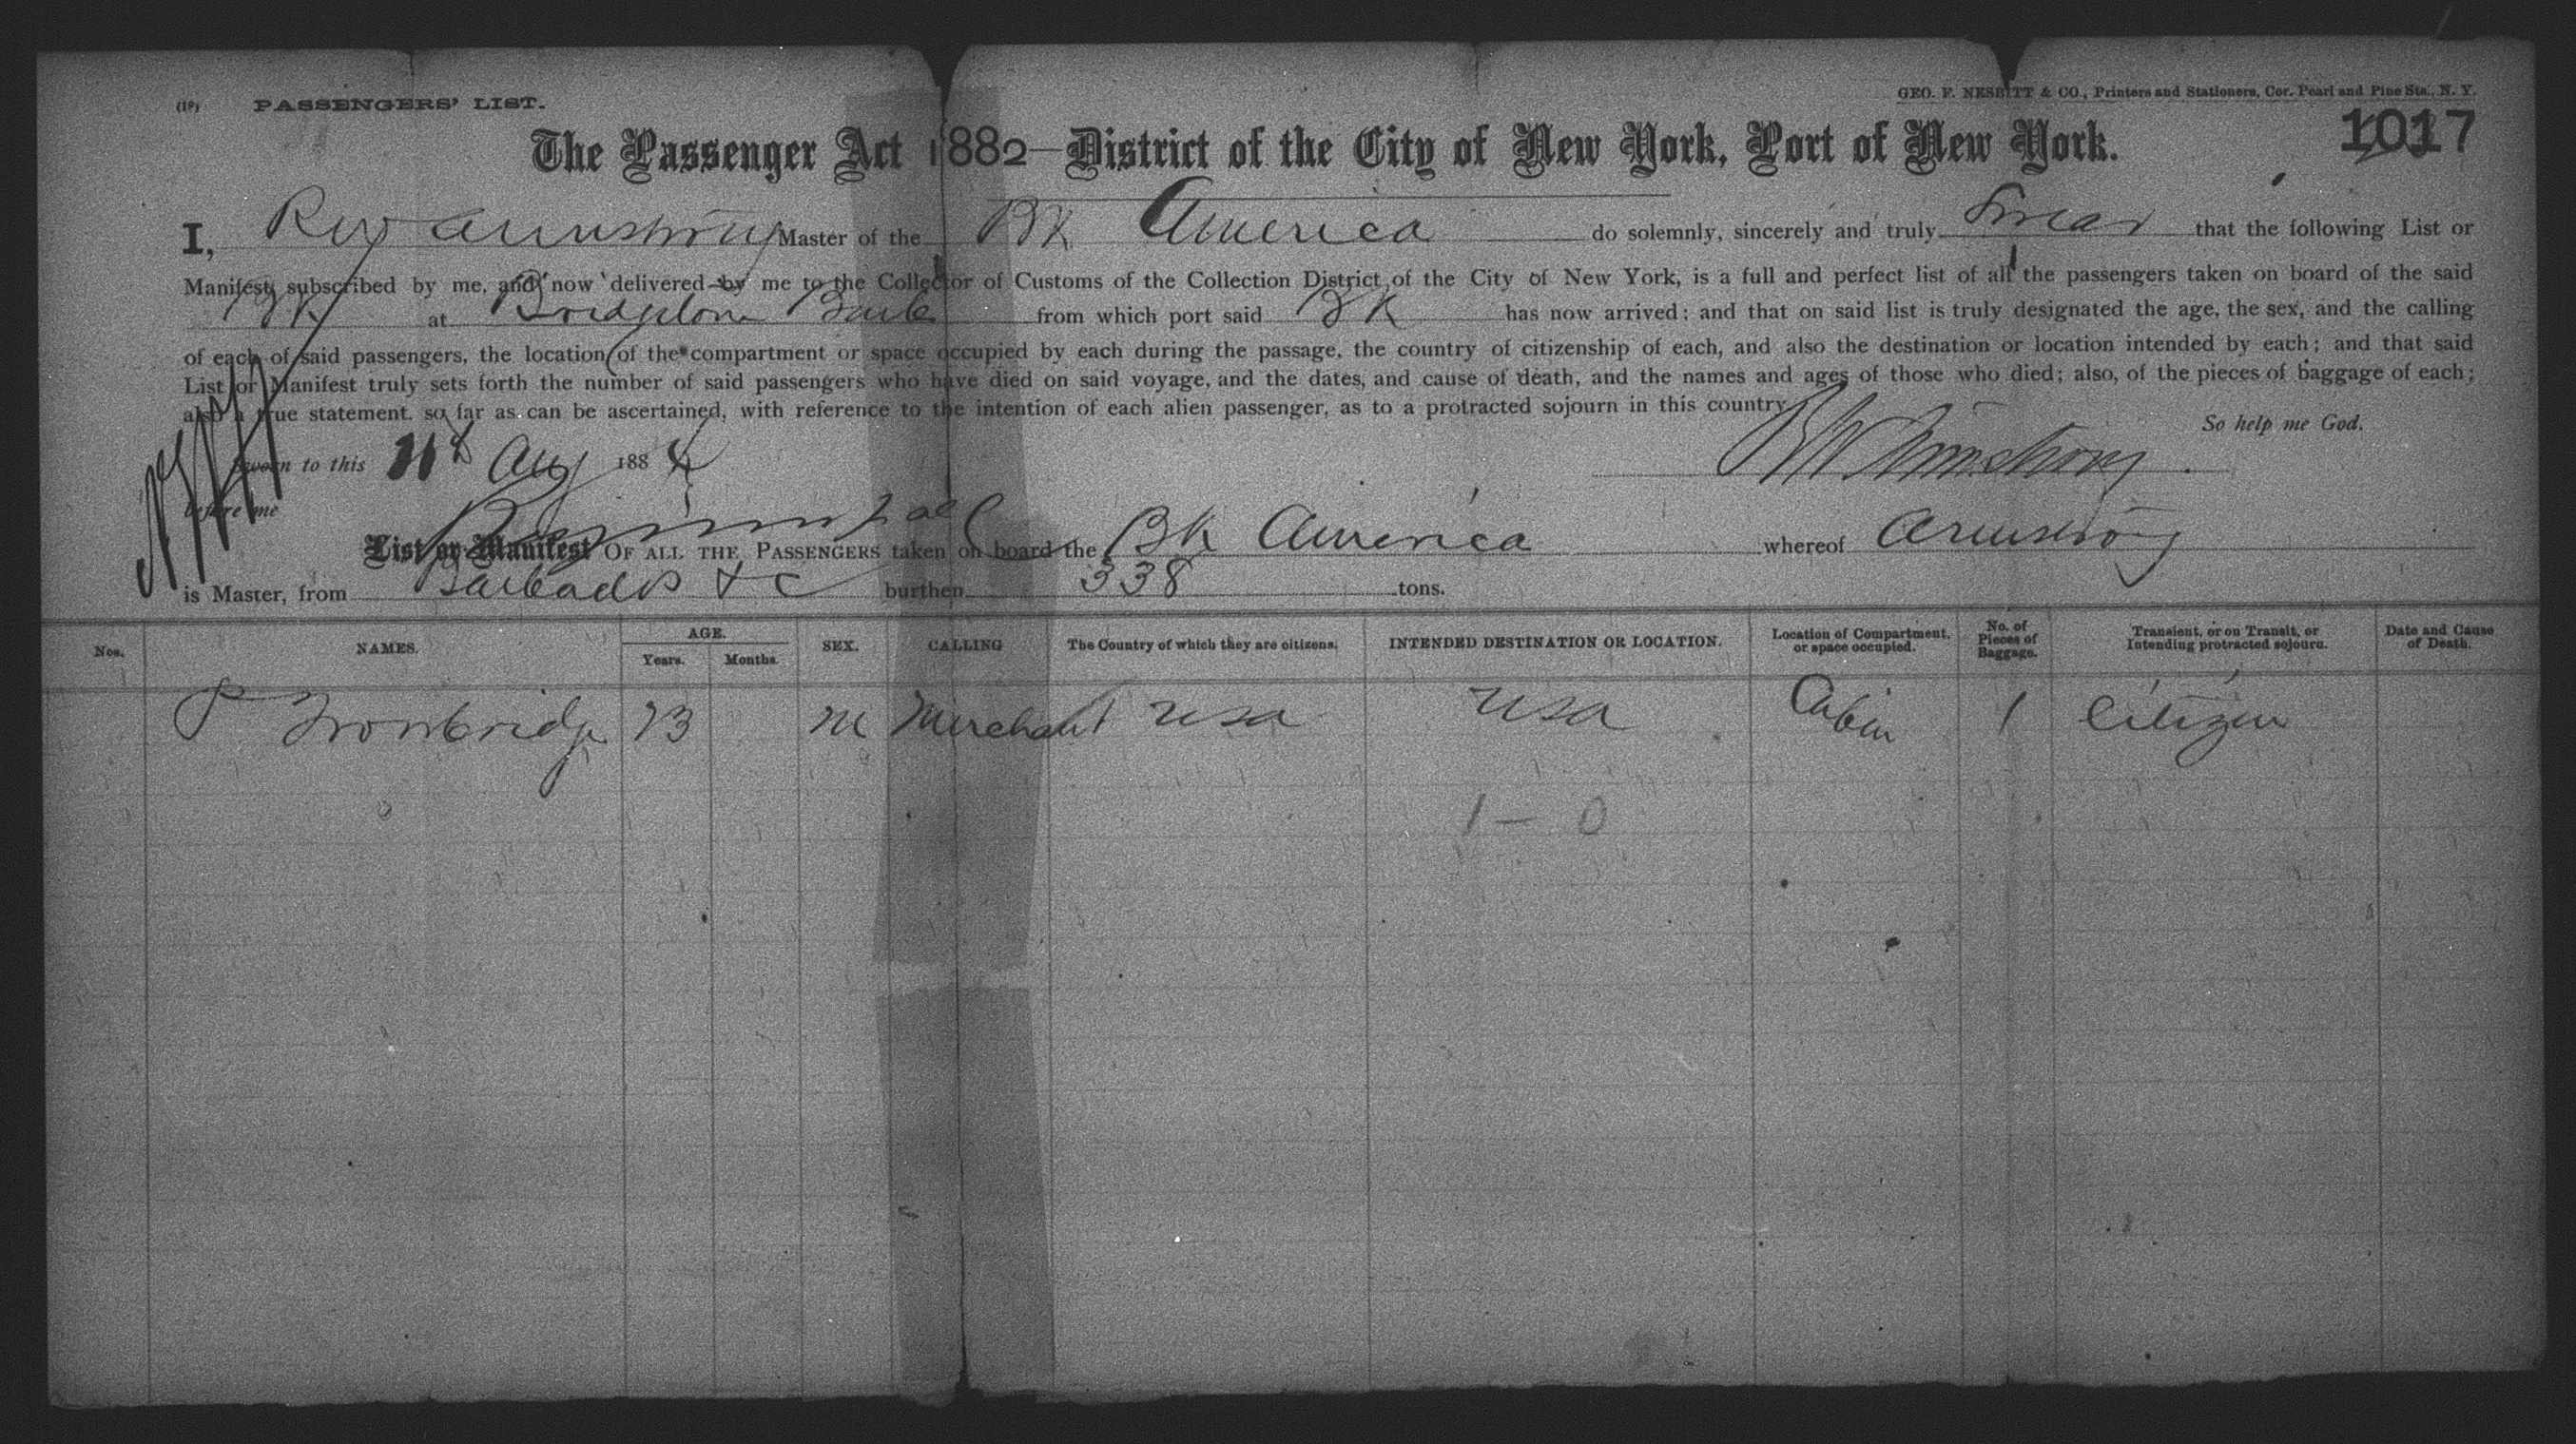 (18) PASSENGERS' LIST.
GEO. F. NESBITT & CO., Printers and Stationers, Cor. Pearl and Pine Sts., N. Y.
1017
The Passenger Act 1882—District of the City of New York, Port of New York.
I, Armstrong Master of the Bk America do solemnly, sincerely and truly Swear that the following List or
Manifest, subscribed by me, and now delivered by me to the Collector of Customs of the Collection District of the City of New York, is a full and perfect list of all the passengers taken on board of the said
Bk at Bridgetown Barb from which port said Bk has now arrived; and that on said list is truly designated the age, the sex, and the calling
of each of said passengers, the location of the compartment or space occupied by each during the passage, the country of citizenship of each, and also the destination or location intended by each; and that said
List or Manifest truly sets forth the number of said passengers who have died on said voyage, and the dates, and cause of death, and the names and ages of those who died; also, of the pieces of baggage of each;
also a true statement, so far as can be ascertained, with reference to the intention of each alien passenger, as to a protracted sojourn in this country.
So help me God.
Sworn to this 11th Aug 1884
RW Armstrong
before me
List or Manifest OF ALL THE PASSENGERS taken on board the Bk America whereof Armstrong
is Master, from Barbados & c burthen 338 tons.
Nos. NAMES. AGE. Years. Months. SEX. CALLING The Country of which they are citizens. INTENDED DESTINATION OR LOCATION. Location of Compartment, or space occupied. No. of Pieces of Baggage. Transient, or on Transit, or Intending protracted sojourn. Date and Cause of Death.
P Trowbridge 23 M Merchant USA USA Cabin 1 Citizen
1 — 0